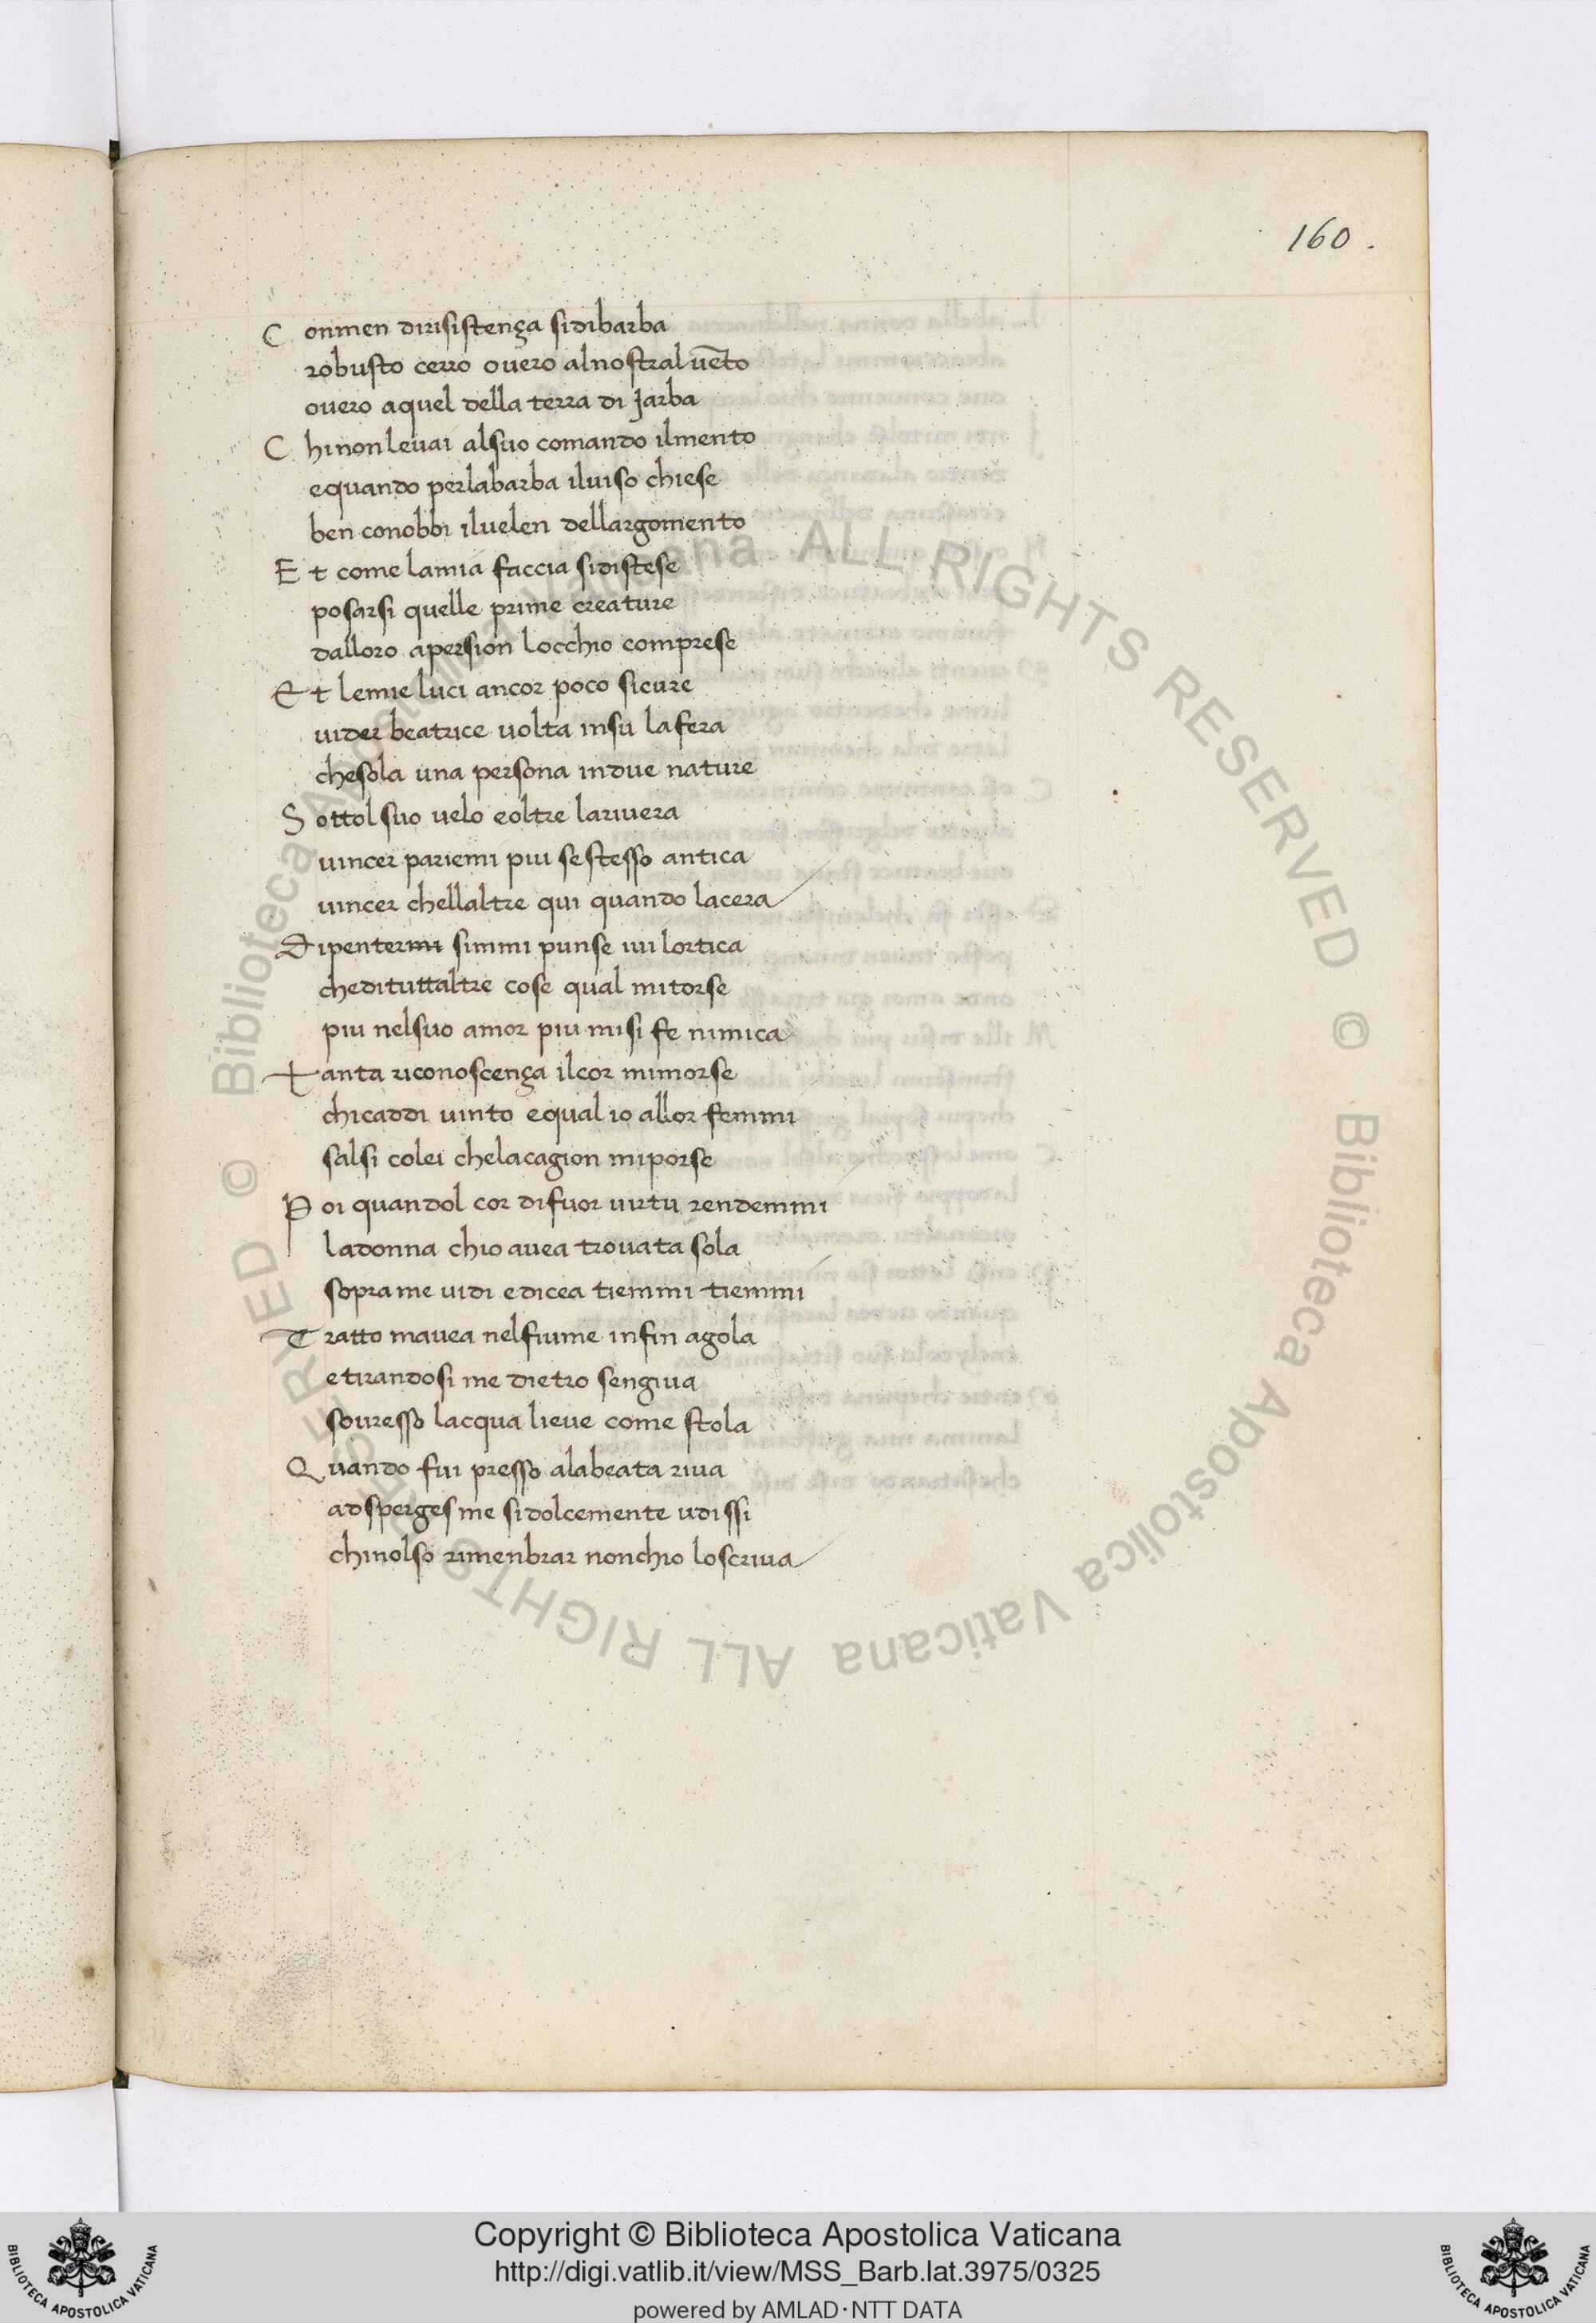 160.
C onmen dirisistença sidibarba
robusto cerro overo alnostral uēto
ouero aquel della terra di Jarba
C hi non leuai alsuo comando ilmento
equando perlabarba iluiso chiese
ben conobbi iluelen dellargomento
E t come lamia faccia sidistese
posarsi quelle prime creature
dalloro apersion locchio comprese
E t lemie luci ancor poco sicure
uider beatrice uolta insu lafera
chesola una persona indue nature
S ottol suo uelo eoltre lariuera
uincer pariemi piu sestesso antica
uincer chellaltre qui quando lacera
D ipentermi simmi punse iui lortica
chedituttaltre cose qual mitorse
piu nelsuo amor piu misi fe nimica
T anta riconoscença ilcor mimorse
chicaddi uinto equal io allor femmi
salsi colei chelacagion miporse
P oi quandol cor difuor uirtu rendemmi
ladonna chio auea trouata sola
soprame uidi edicea tiemmi tiemmi
T ratto mauea nelfiume infin agola
etirandosi me dietro sengiua
souresso lacqua lieue come stola
Q uando fui presso alabeata riua
adsperges me sidolcemente udissi
chinolso rimenbrar nonchio loscriua
© Biblioteca Apostolica Vaticana ALL RIGHTS RESERVED © Biblioteca Apostolica Vaticana ALL RIGHTS RESERVED
Copyright © Biblioteca Apostolica Vaticana
http://digi.vatlib.it/view/MSS_Barb.lat.3975/0325
powered by AMLAD·NTT DATA
BIBLIOTECA APOSTOLICA VATICANA
BIBLIOTECA APOSTOLICA VATICANA